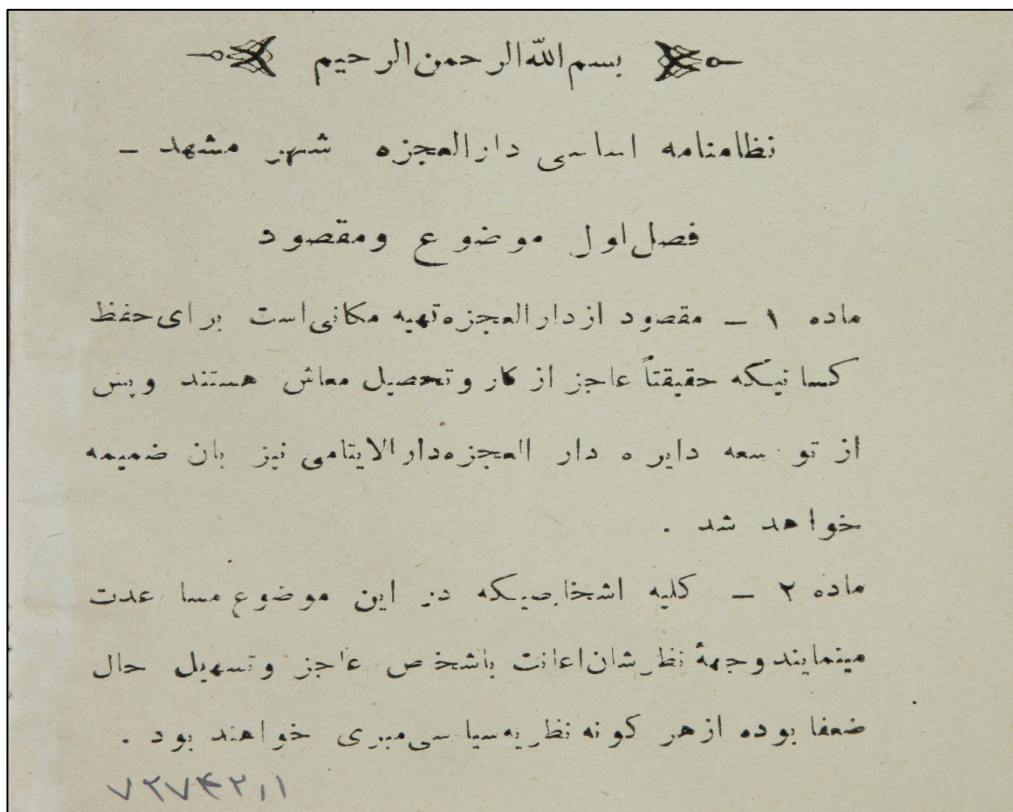 بسم الله الرحمن الرحیم
نظامنامه اساسی دارالعجزه شهر مشهد ـ
فصل اول موضوع ومقصود
ماده ۱ ـ مقصود از دارالعجزه تهیه مکانی است برای حفظ
کسانیکه حقیقتاً عاجز از کار وتحصیل معاش هستند وپس
از توسعه دایره دار العجزه دارالایتامی نیز بان ضمیمه
خواهد شد .
ماده ۲ ـ کلیه اشخاصیکه در این موضوع مساعدت
مینمایند وجههٔ نظرشان اعانت باشخص عاجز وتسهیل حال
ضعفا بوده از هر کونه نظریه سیاسی مبری خواهند بود .
۷۲۷۴۲,۱